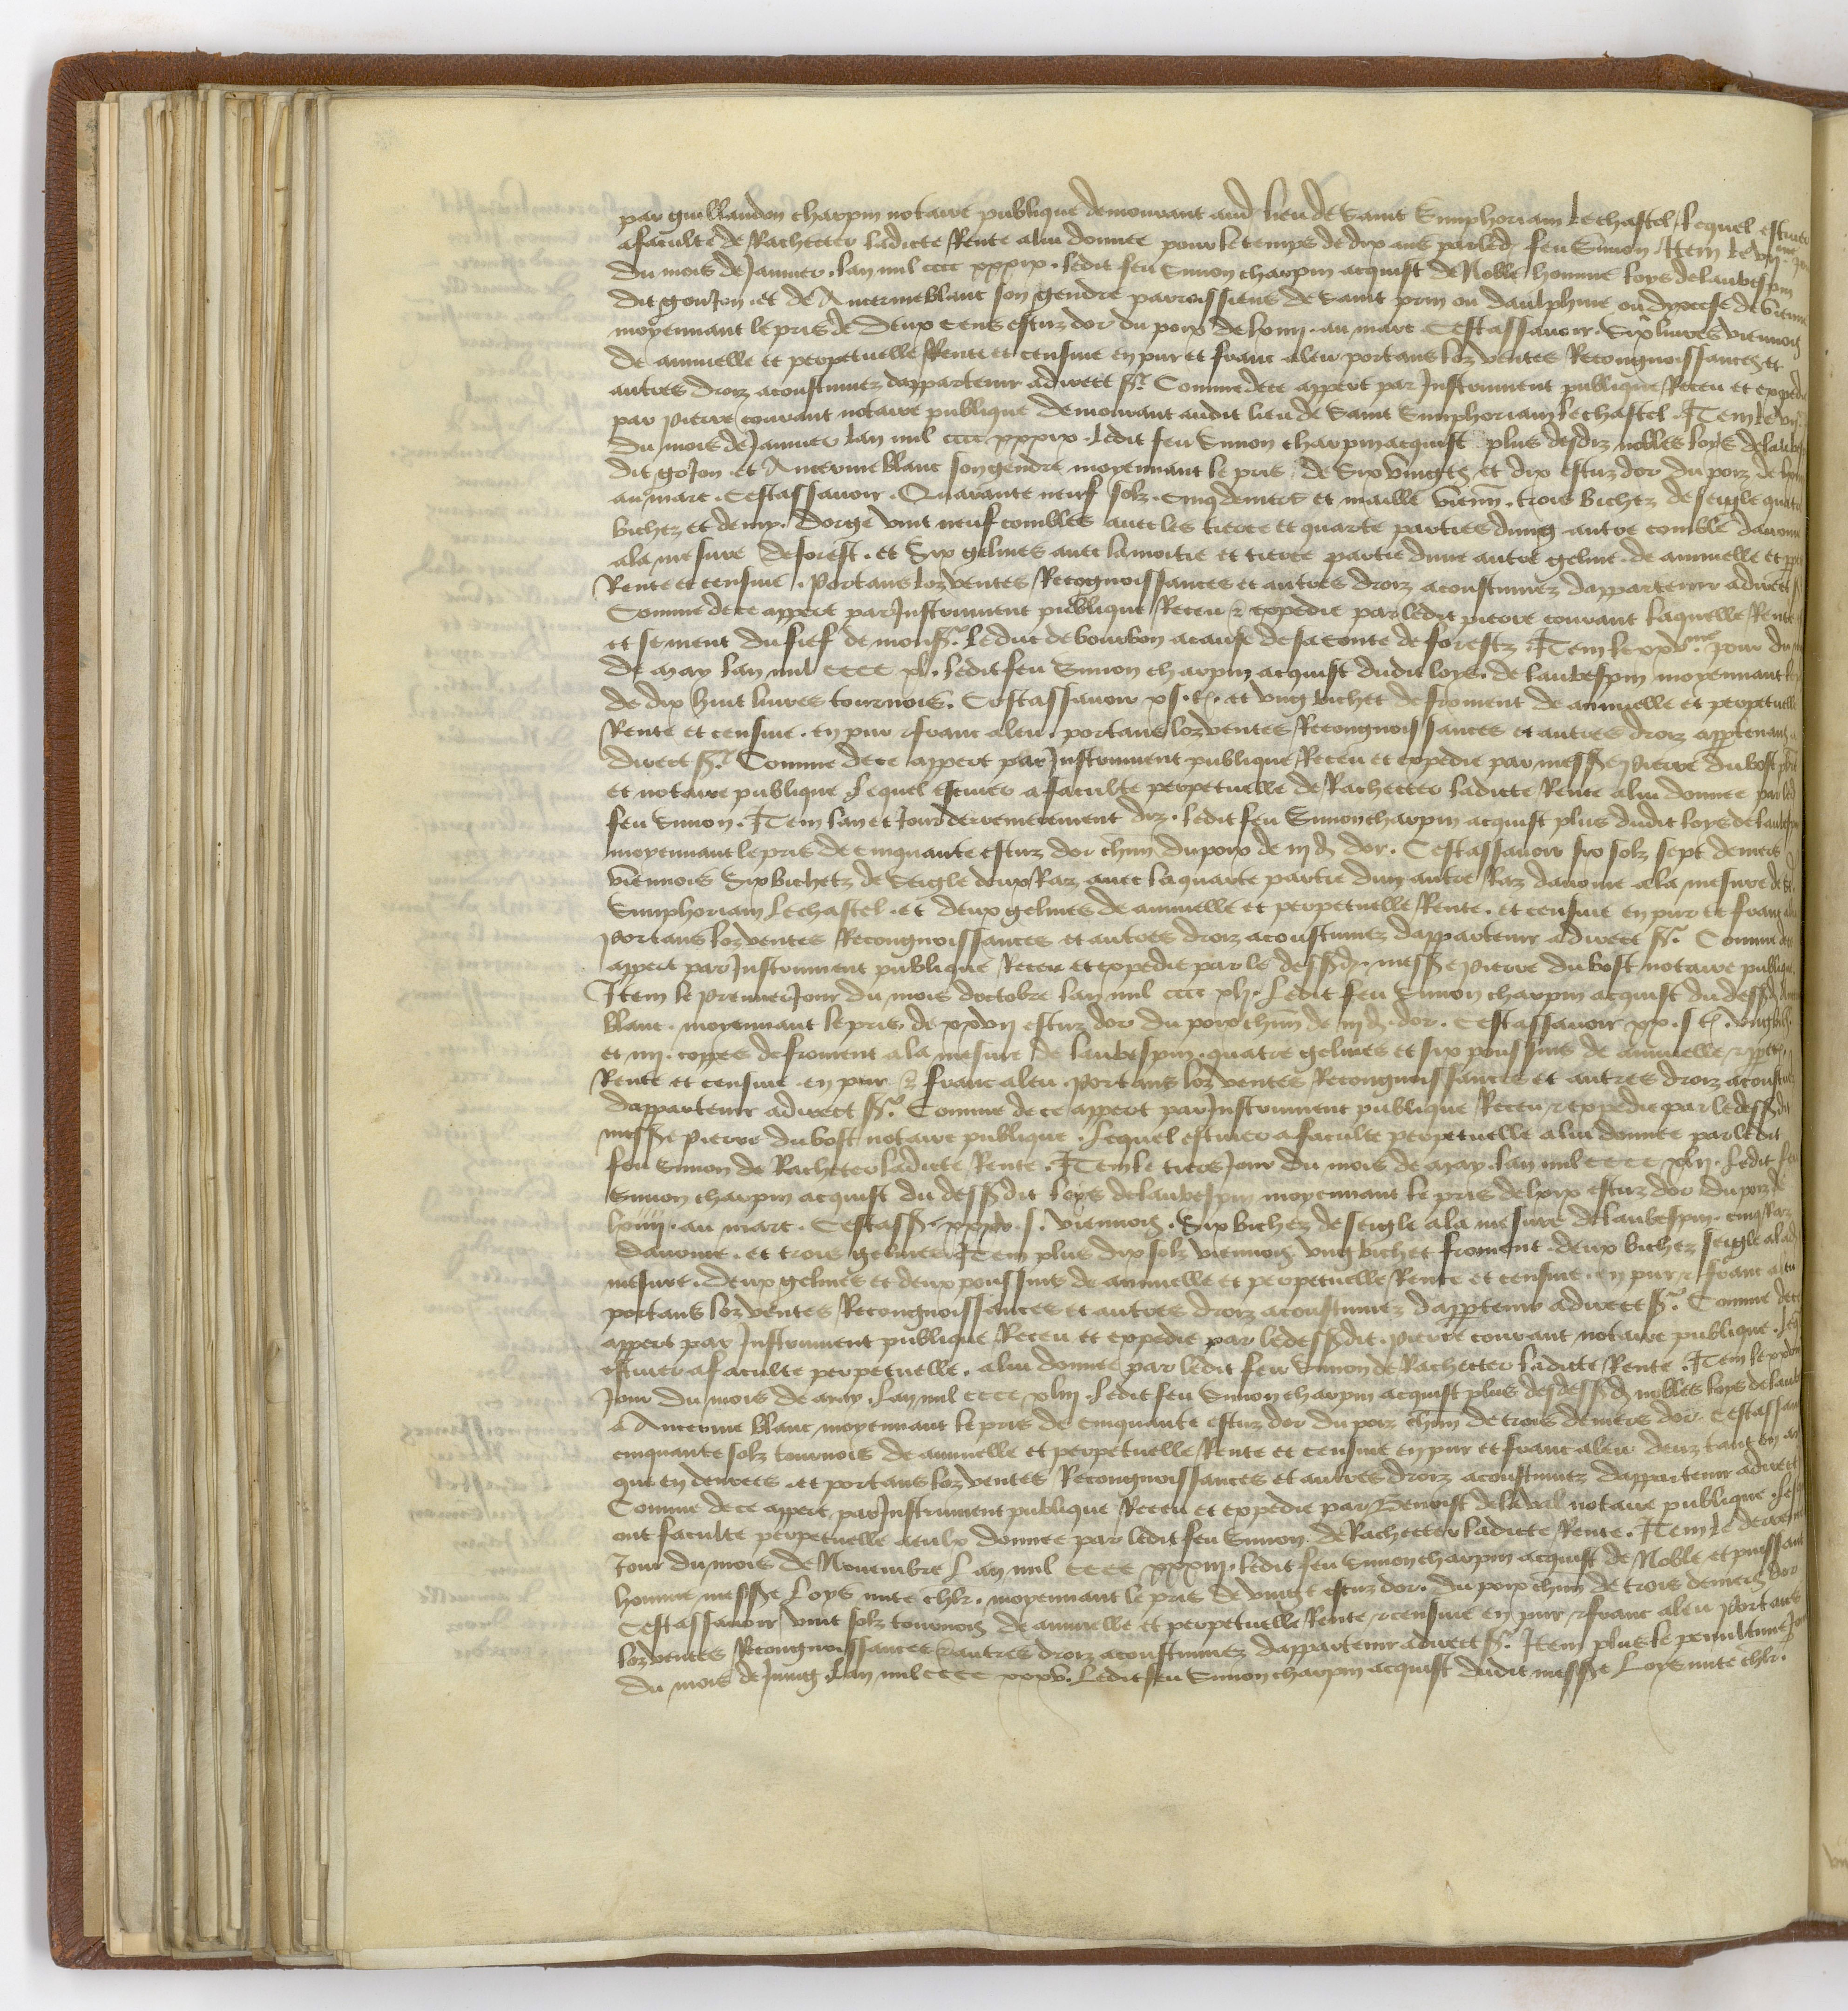 par guillaudon charpin notaire publique demourant aud lieu de saint Simphorian lechastel lequel escuier
a faculte de Racheter ladicte Rente a lui donnee pour le temps de dix ans par led feu Simon Item le
du mois de Januier lan mil cccc xxxix ledit feu Simon charpin acquist de Noble homme loys de laubespin
dit gouion et de Anterme blanc son gendre parroissiens de saint prin ou daulphine ou dyocese de vienne
moyennant le pris de Deux cens escuz dor du poix de lxiiij au marc Cestassauoir Six liures viennois
de annuelle et perpetuelle Rente et censiue en pur et franc aleu portans loz ventes Recongnoissances et
autres droiz acoustumez dappartenir a direct sr Comme de ce appert par Instrument publique Receu et expedie
par pierre courant notaire publique demourant audit lieu de saint Simphorian lechastel Item le vij
du mois de Januier lan mil cccc xxxix ledit feu Simon charpin acquist plus desdiz nobles loys de laube
dit goion et Anterme blanc son gendre moyennant le pris de Six vingts et dix escuz dor du poiz de
au marc Cestassauoir Quarante neuf solz cinq deniers et maille vienn trois bichez de seigle quatre
bichez et demy dorge vint neuf combles auec les tierce et quarte parties dung autre comble dauoine
a la mesure de forest et Six gelines auec la moitie et tierce partie dune autre geline de annuelle et
Rente et censiue portans loz ventes Recognoissances et autres droiz acoustumez dappartenir a direct
Comme de ce appert par Instrument publique Receu & expedie par ledit pierre courant laquelle Rente
et se meut du fief de monsr le duc de bourbon a cause de sa conte de forestz Item le xxve jour du
de may lan mil cccc xl ledit feu Simon charpin acquist dudit loys de laubespin moyennant
de dix huit liures tournois Cestassauoir xs t et ung bichet de froment de annuelle et perpetuelle
Rente et censiue en pur & franc aleu portans loz ventes Recongnoissances et autres droiz appartenans a
direct sr Comme de ce appert par Instrument publique Receu et expedie par messe pierre du bost
et notaire publique lequel escuier a faculte perpetuelle de Racheter ladicte Rente a lui donnee par led
feu Simon Item lan et Jour derrenierement diz ledit feu Simon charpin acquist plus dudit loys de laubespin
moyennant le pris de cinquante escuz dor chun du poix de iij d dor Cestassauoir six solz sept deniers
viennois Six bichetz de Seigle deux Raz auec la quarte partie dun autre Raz dauoine a la mesure de
Simphorian lechastel et deux gelines de annuelle et perpetuelle Rente et censiue en pur et franc
portans loz ventes Recongnoissances et autres droiz acoustumez dappartenir a direct sr Comme de
appert par Instrument publique Receu et expedie par le dessd messe pierre du bost notaire publique
Item le premier Jour du mois doctobre lan mil cccc xlj ledit feu Simon charpin acquist du dessd
blanc moyennant le pris de xxvij escuz dor du poix chun de iij d dor Cestassauoir xx s t ung
et iiij coppes de froment a la mesure de laubespin quatre gelines et six poussins de annuelle &
Rente et censiue en pur & franc aleu portans loz ventes Recongnoissances et autres droiz acoustumez
dappartenir a direct sr Comme de ce appert par Instrument publique Receu & expedie par le dessdit
messe pierre du bost notaire publique lequel escuier a faculte perpetuelle a lui donnee par ledit
feu Simon de Racheter ladicte Rente Item le tiers Jour du mois de may lan mil cccc xlij ledit feu
Simon charpin acquist du dessdit loys de laubespin moyennant le pris de lxix escuz dor du poiz de
lxiiij au marc Cestass xxxv s viennois Six bichez de seigle a la mesure de laubespin cinq Raz
dauoine et trois gelines Item plus dix solz viennois ung bichet froment deux bichez seigle a lad
mesure deux gelines et deux poussins de annuelle et perpetuelle Rente et censiue en pur & franc aleu
portans loz ventes Recongnoissances et autres droiz acoustumez dappartenir a direct sr Comme de ce
appert par Instrument publique Receu et expedie par le dessdit pierre courant notaire publique leq
escuier a faculte perpetuelle a lui donnee par ledit feu Simon de Racheter ladicte Rente Item le
Jour du mois de may lan mil cccc xliij ledit feu Simon charpin acquist plus des dessd nobles loys de laube
& Anterme blanc moyennant le pris de cinquante escuz dor du poiz chun de trois deniers dor Cestassauoir
cinquante solz tournois de annuelle et perpetuelle Rente et censiue en pur et franc aleu deuz tant en
que en denrees et portans loz ventes Recongnoissances et autres droiz acoustumez dappartenir a direct
Comme de ce appert par Instrument publique Receu et expedie par Benoist de laval notaire publique
ont faculte perpetuelle a eulx donnee par ledit feu Simon de Racheter ladicte Rente Item le
Jour du mois de Nouembre lan mil cccc xxxiij ledit feu Simon charpin acquist de Noble et puissant
homme messe Loys mite chlr moyennant le pris de vingt escuz dor du poix chun de trois deniers dor
Cestassauoir vint solz tournois de annuelle et perpetuelle Rente & censiue en pur & franc aleu portans
loz ventes Recongnoissances & autres droiz acoustumez dappartenir a direct sr Item plus le penultime Jour
du mois de Juing lan mil cccc xxxv ledit feu Simon charpin acquist dudit messe Loys mite chlr